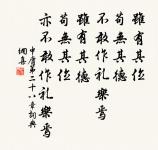 雖有其位
苟無其德
不敢作禮樂焉
雖有其德
苟無其位
亦不敢作禮樂焉
中庸第二十八章詞典
網